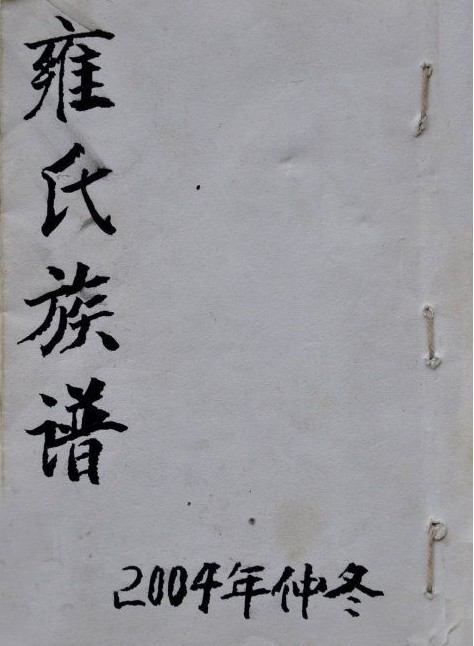 雍氏族谱
2004年仲冬